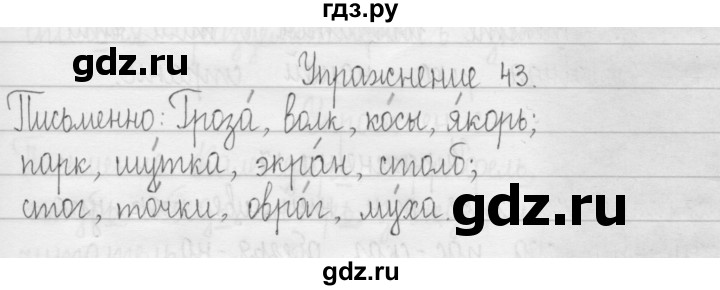 гдз.ру
gdz.ru
Упражнение 43.
Письменно: Гроза́, волк, ко́сы, я́корь;
парк, шу́тка, экра́н, столб;
стог, то́чки, овра́г, му́ха.
gdz.ru
gdz.ru